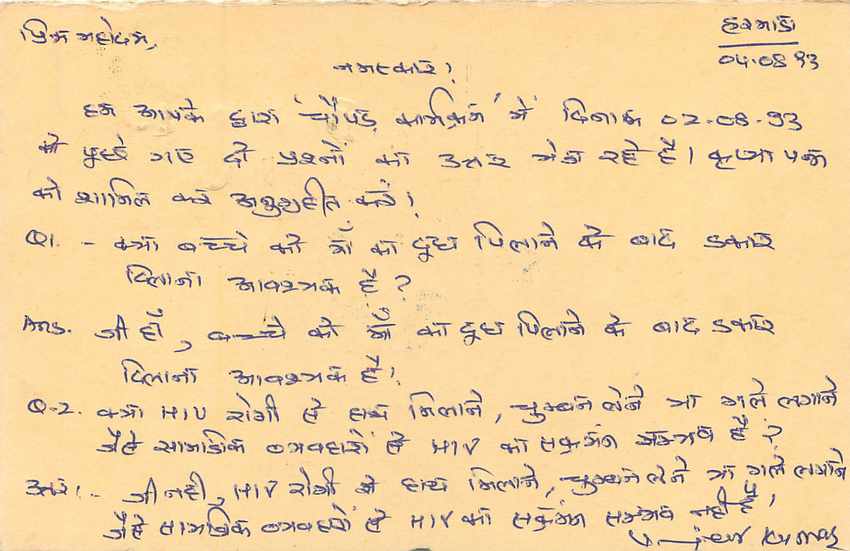 हरमाडा
प्रिय महोदय,
04.08.93
नमस्कार!
हम आपके द्वारा 'चौपड़ कार्यक्रम' में दिनांक 02-08-93
को पूछे गए दो प्रश्नों का उत्तर भेज रहे हैं। कृप्या पत्र
को शामिल कर अनुग्रहीत करें।
Q1. - क्या बच्चे को माँ का दूध पिलाने के बाद डकार
दिलाना आवश्यक है?
Ans. जी हाँ, बच्चे को माँ का दूध पिलाने के बाद डकार
दिलाना आवश्यक है।
Q-2. क्या HIV रोगी से हाथ मिलाने, चुम्बन लेने या गले लगाने
जैसे सामाजिक व्यवहारों से HIV का संक्रमण सम्भव है?
उत्तर:- जी नहीं, HIV रोगी से हाथ मिलाने, चुम्बन लेने या गले लगाने
जैसे सामाजिक व्यवहारों से HIV का संक्रमण सम्भव नहीं है।
Kumar